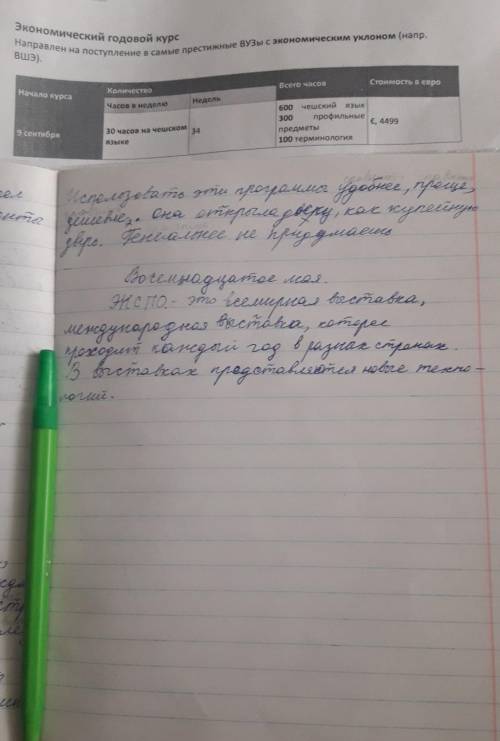 Экономический годовой курс
Направлен на поступление в самые престижные ВУЗы с экономическим уклоном (напр.
ВШЭ).
Начало курса Количество Всего часов Стоимость в евро
Часов в неделю Недель
9 сентября 30 часов на чешском языке 34 600 чешский язык 300 профильные предметы 100 терминология €, 4499
Использовать эти программы удобнее, проще,
дешевле. она открыла дверу, как купейную
дверь. Гениальнее не придумаешь
Восемнадцатое мая.
ЭКСПО - это всемирная выставка,
международная выставка, которее
проходит каждый год в разных странах.
В выставках представляются новые техно-
логий.